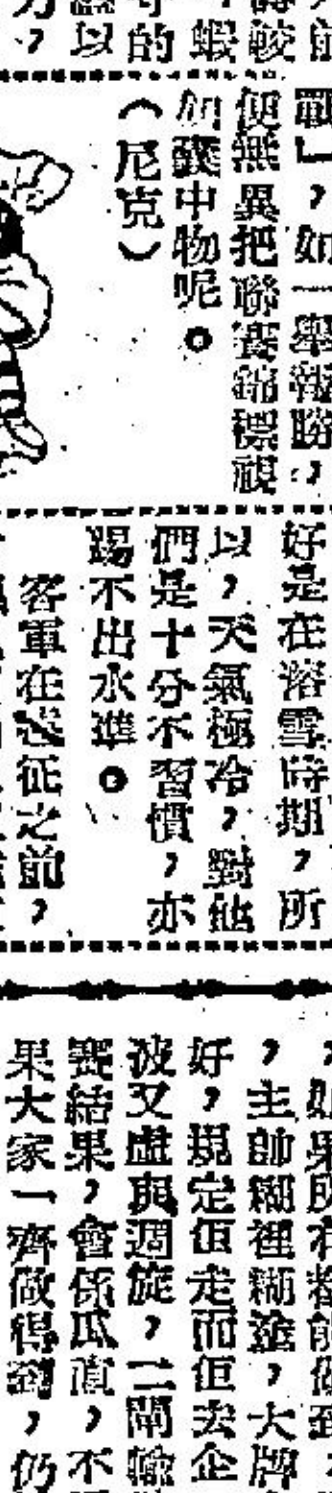 戰」，如一舉報勝，
便無異把聯賽錦標視
如囊中物呢。
（尼克）
好是在溶雪時期，所
以，天氣極冷，對他
們是十分不習慣，亦
踢不出水準。
客軍在遠征之前，
，主帥糊裡糊塗，大牌
好，規定佢走而佢去企
波又虛與週旋，二閘
賽結果，會係瓜直，不
果大家一齊做得到，仍